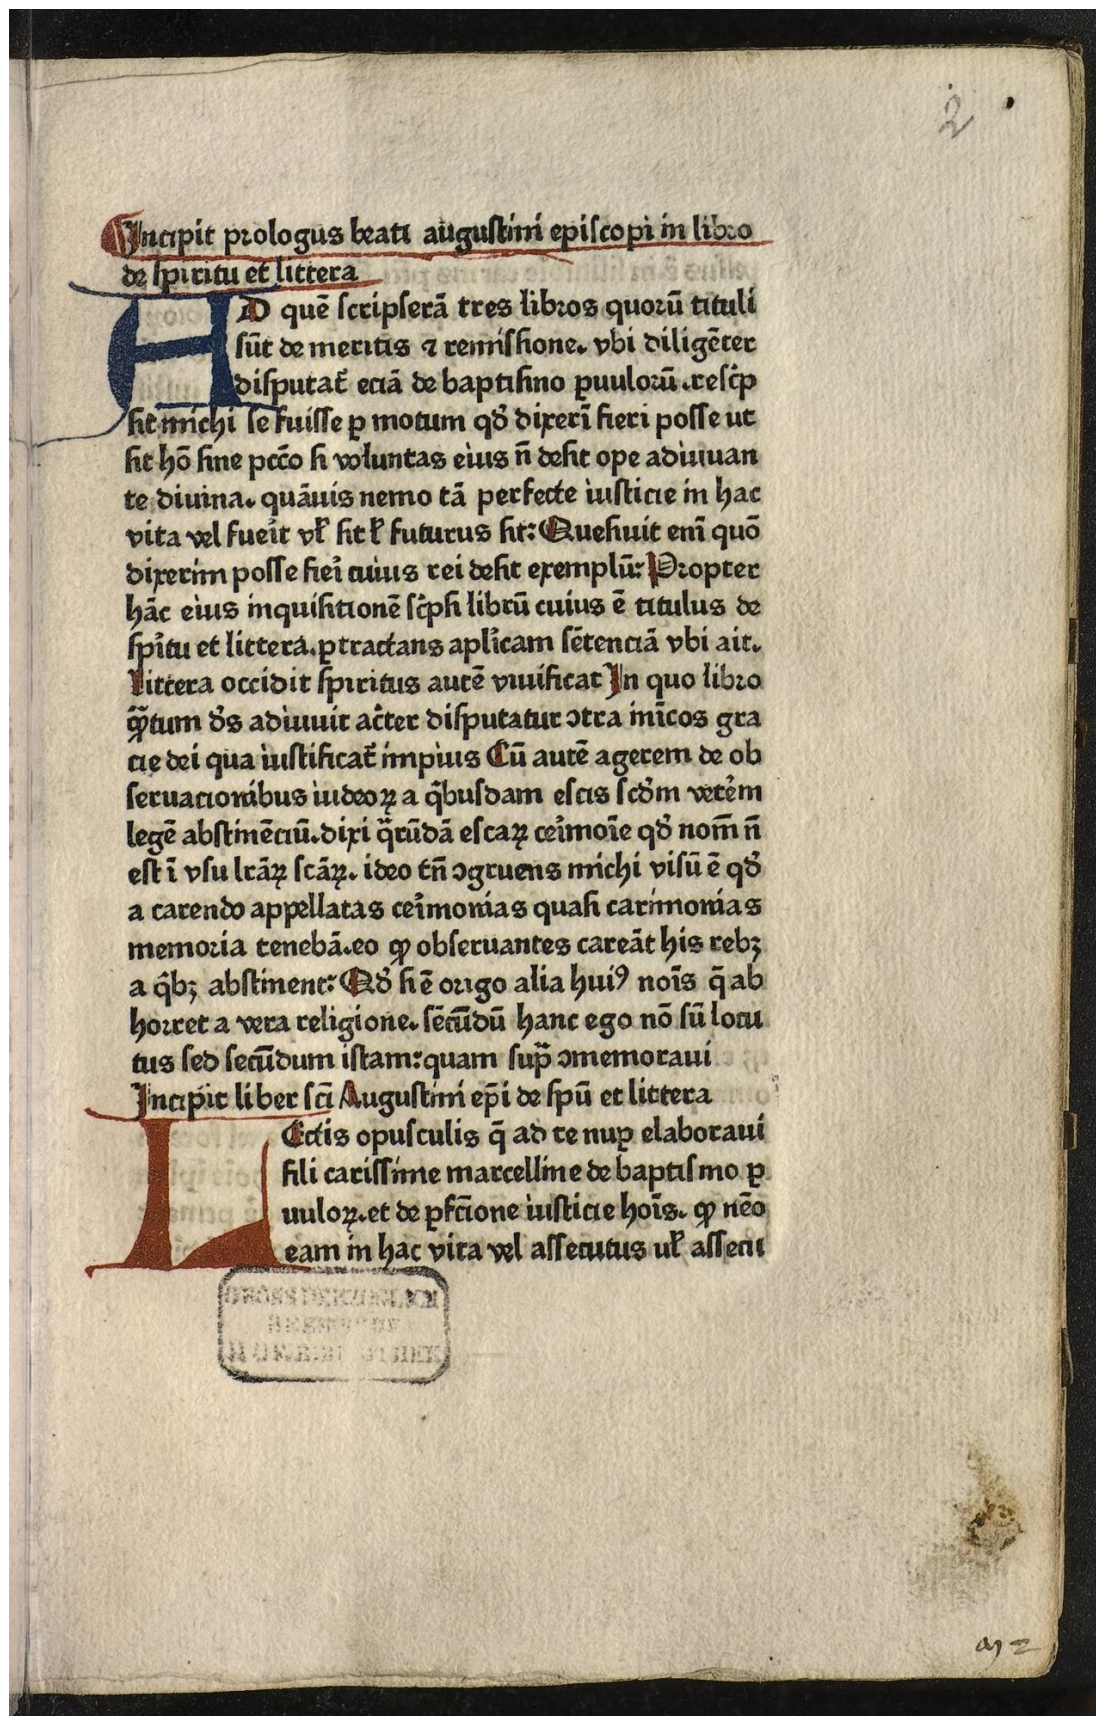 2
Incipit prologus beati augustini episcopi in libro
de spiritu et littera
AD quē scripserā tres libros quorū tituli
sūt de meritis ⁊ remissione. vbi diligēter
disputat᷑ eciā de baptismo ꝑuulorū. resc̔p
sit michi se fuisse ꝑ motum qd̓ dixerī fieri posse ut
sit hō sine pcc̄o si voluntas eius n̄ desit ope adiuuan
te diuina. quāuis nemo tā perfecte iusticie in hac
vita vel fueı̔t vl̓ sit l̓ futurus sit: Quesiuit enı̄ quō
dixerim posse fieı̔ cuius rei desit exemplū: Propter
hāc eius inquisitionē sc̔psi librū cuius ē titulus de
spı̔tu et littera. ꝑtractans apl̔icam sētenciā vbi ait.
Littera occidit spiritus autē viuificat In quo libro
qᷓ̄tum d̓s adiuuit ac̔ter disputatur ↄtra inı̄cos gra
cie dei qua iustificat᷑ impius Cū autē agerem de ob
seruacionibus iudeoꝝ a q̔busdam escis scd̓m vete̔m
legē abstinēciū. dixi qᷓrūdā escaꝝ ceı̔moı̄e qd̓ nom̄ n̄
est ı̄ vsu lrāꝝ scāꝝ. ideo tn̄ ↄgruens michi visū ē qd̓
a carendo appellatas ceı̔monias quasi carimonias
memoria tenebā. eo ꝙ obseruantes careāt his rebꝫ
a q̔bꝫ abstinent: Qd̓ si ē origo alia hui⁹ noı̄s q̄ ab
horret a vera religione. sēcūdū hanc ego nō sū locu
tus sed secūdum istam: quam supᷓ ↄmemoraui
Incipit liber sc̄i Augustini ep̄i de spū et littera
LEctis opusculis q̄ ad te nuꝑ elaboraui
fili carissime marcelline de baptismo ꝑ
uuloꝝ. et de ꝑfc̄ione iusticie hoı̄s. ꝙ nēo
eam in hac vita vel assecutus ul̓ assecu